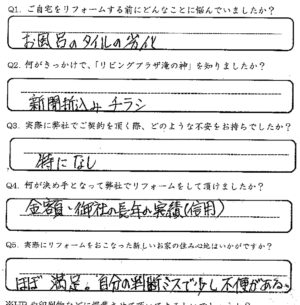 Q1. ご自宅をリフォームする前にどんなことに悩んでいましたか?
お風呂のタイルの劣化
Q2. 何がきっかけで、「リビングプラザ滝の神」を知りましたか?
新聞折込みチラシ
Q3. 実際に弊社でご契約を頂く際、どのような不安をお持ちでしたか?
特になし
Q4. 何が決め手となって弊社でリフォームをして頂けましたか?
金額・御社の長年の実績(信用)
Q5. 実際にリフォームをおこなった新しいお家の住み心地はいかがですか?
ほぼ満足。自分の判断ミスで少し不便がある。